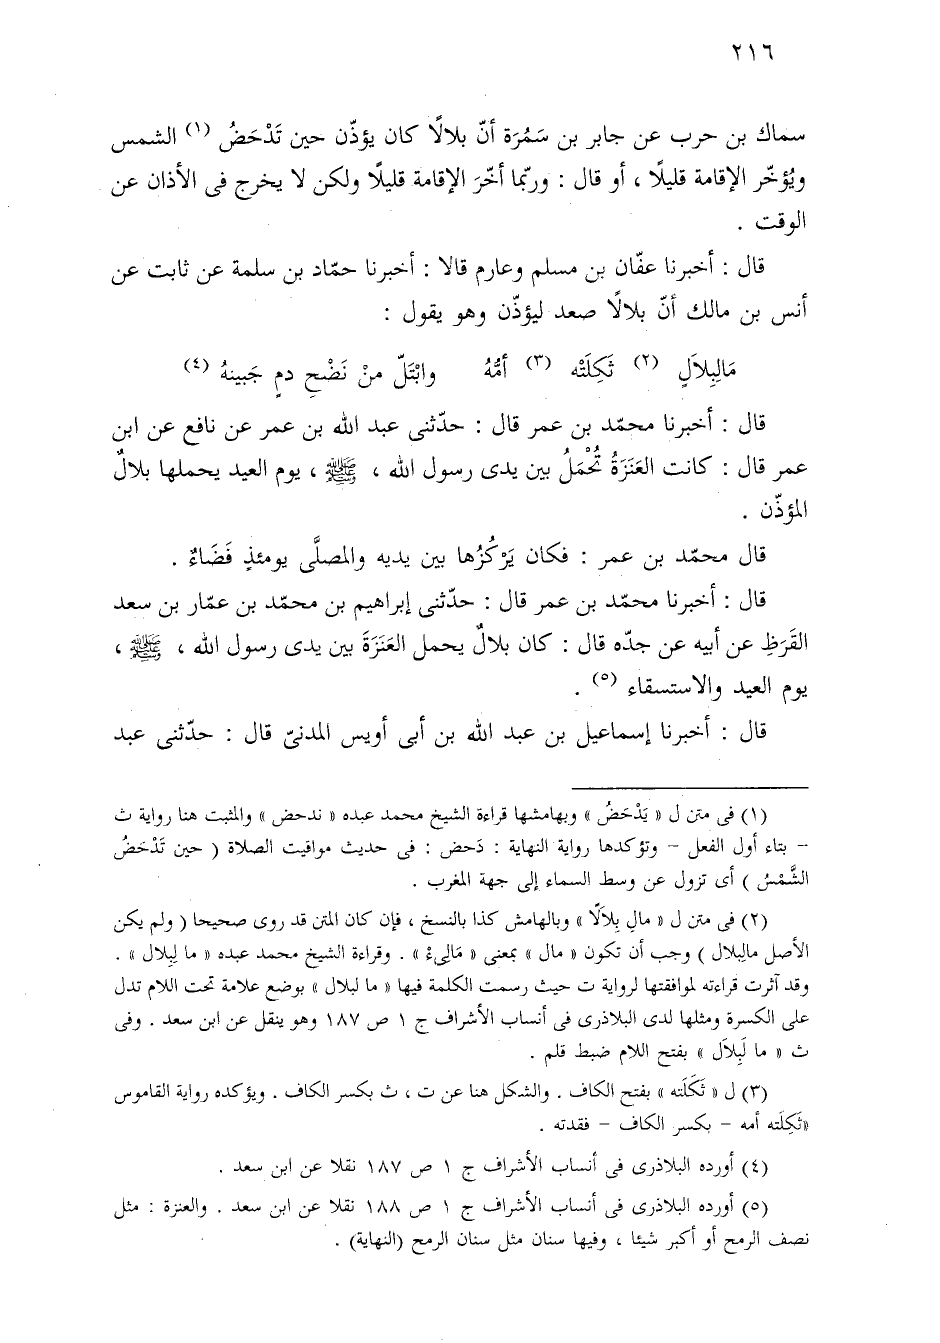 ٢١٦
سماك بن حرب عن جابر بن سَمُرَة أنّ بلالًا كان يؤذّن حين تَدْحَضُ (١) الشمس
ويُؤخّر الإقامة قليلًا ، أو قال : وربّما أخّرَ الإقامة قليلًا ولكن لا يخرج فى الأذان عن
الوقت .
قال : أخبرنا عفّان بن مسلم وعارم قالا : أخبرنا حمّاد بن سلمة عن ثابت عن
أنس بن مالك أنّ بلالًا صعد ليؤذّن وهو يقول :
مَالِبِلاَلٍ (٢) ثَكِلَتْه (٣) أمُّهُ وابْتَلّ منْ نَضْحِ دمٍ جَبينهُ (٤)
قال : أخبرنا محمّد بن عمر قال : حدّثنى عبد الله بن عمر عن نافع عن ابن
عمر قال : كانت العَنَزَةُ تُحْمَلُ بين يدى رسول الله ، ﷺ ، يوم العيد يحملها بلالٌ
المؤذّن .
قال محمّد بن عمر : فكان يَرْكُزُها بين يديه والمصلَّى يومئذٍ فَضَاءٌ .
قال : أخبرنا محمّد بن عمر قال : حدّثنى إبراهيم بن محمّد بن عمّار بن سعد
القَرَظِ عن أبيه عن جدّه قال : كان بلالٌ يحمل العَنَزَةَ بين يدى رسول الله ، ﷺ ،
يوم العيد والاستسقاء (٥) .
قال : أخبرنا إسماعيل بن عبد الله بن أبى أويس المدنىّ قال : حدّثنى عبد
(١) فى متن ل « يَدْحَضُ » وبهامشها قراءة الشيخ محمد عبده « ندحض » والمثبت هنا رواية ث
– بتاء أول الفعل – وتؤكدها رواية النهاية : دَحض : فى حديث مواقيت الصلاة ( حين تَدْحَضُ
الشَّمْسُ ) أى تزول عن وسط السماء إلى جهة المغرب .
(٢) فى متن ل « مالِ بِلاَلًا » وبالهامش كذا بالنسخ ، فإن كان المتن قد روى صحيحا ( ولم يكن
الأصل مالِبلال ) وجب أن تكون « مال » بمعنى « مَالِىءْ » . وقراءة الشيخ محمد عبده « ما لبِلال » .
وقد آثرت قراءته لموافقتها لرواية ت حيث رسمت الكلمة فيها « ما لبلال » بوضع علامة تحت اللام تدل
على الكسرة ومثلها لدى البلاذرى فى أنساب الأشراف ج ١ ص ١٨٧ وهو ينقل عن ابن سعد . وفى
ث « ما لَبِلاَل » بفتح اللام ضبط قلم .
(٣) ل « ثَكَلَته » بفتح الكاف . والشكل هنا عن ت ، ث بكسر الكاف . ويؤكده رواية القاموس
«ثَكِلَته أمه – بكسر الكاف – فقدته .
(٤) أورده البلاذرى فى أنساب الأشراف ج ١ ص ١٨٧ نقلا عن ابن سعد .
(٥) أورده البلاذرى فى أنساب الأشراف ج ١ ص ١٨٨ نقلا عن ابن سعد . والعنزة : مثل
نصف الرمح أو أكبر شيئا ، وفيها سنان مثل سنان الرمح (النهاية) .